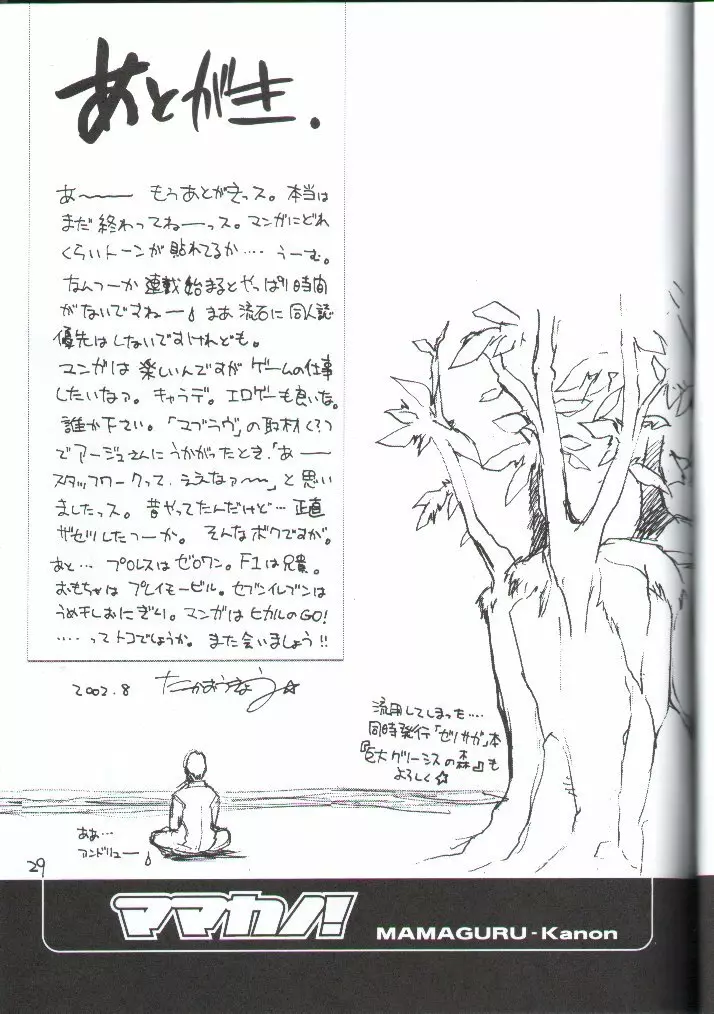 あとがき.
あ〜〜 もうあとがきっス。本当は
まだ終わってねーっス。マンガにどれ
くらいトーンが貼れてるか‥‥うーむ。
なんつーか連載始まるとやっぱり時間
がないですねー まあ流石に同人誌
優先はしないですけれども。
マンガは楽しいんですがゲームの仕事
したいなァ。キャラデ。エロゲーも良いな。
誰か下さい。「マブラヴ」の取材くるっ
でアージュさんにうかがったとき、「あ――
スタッフワークって、ええなァ〜〜」と思い
ましたっス。昔やってたんだけど…正直
ザセツしたっつーか。そんなボクですが。
あと… プロレスはゼロワン。F1は兄貴。
おもちゃはプレイモービル。セブンイレブンは
うめぼしおにぎり。マンガはヒカルのGO!
‥‥ってトコでしょうか。また会いましょう!!
2002.8 たかおうきょう☆
流用してしまった‥‥
同時発行「ゼノサガ」本
『巨大グリーシスの森』も
よろしく☆
ああ…
アンドリュー
29
ママカノ!
MAMAGURU-Kanon